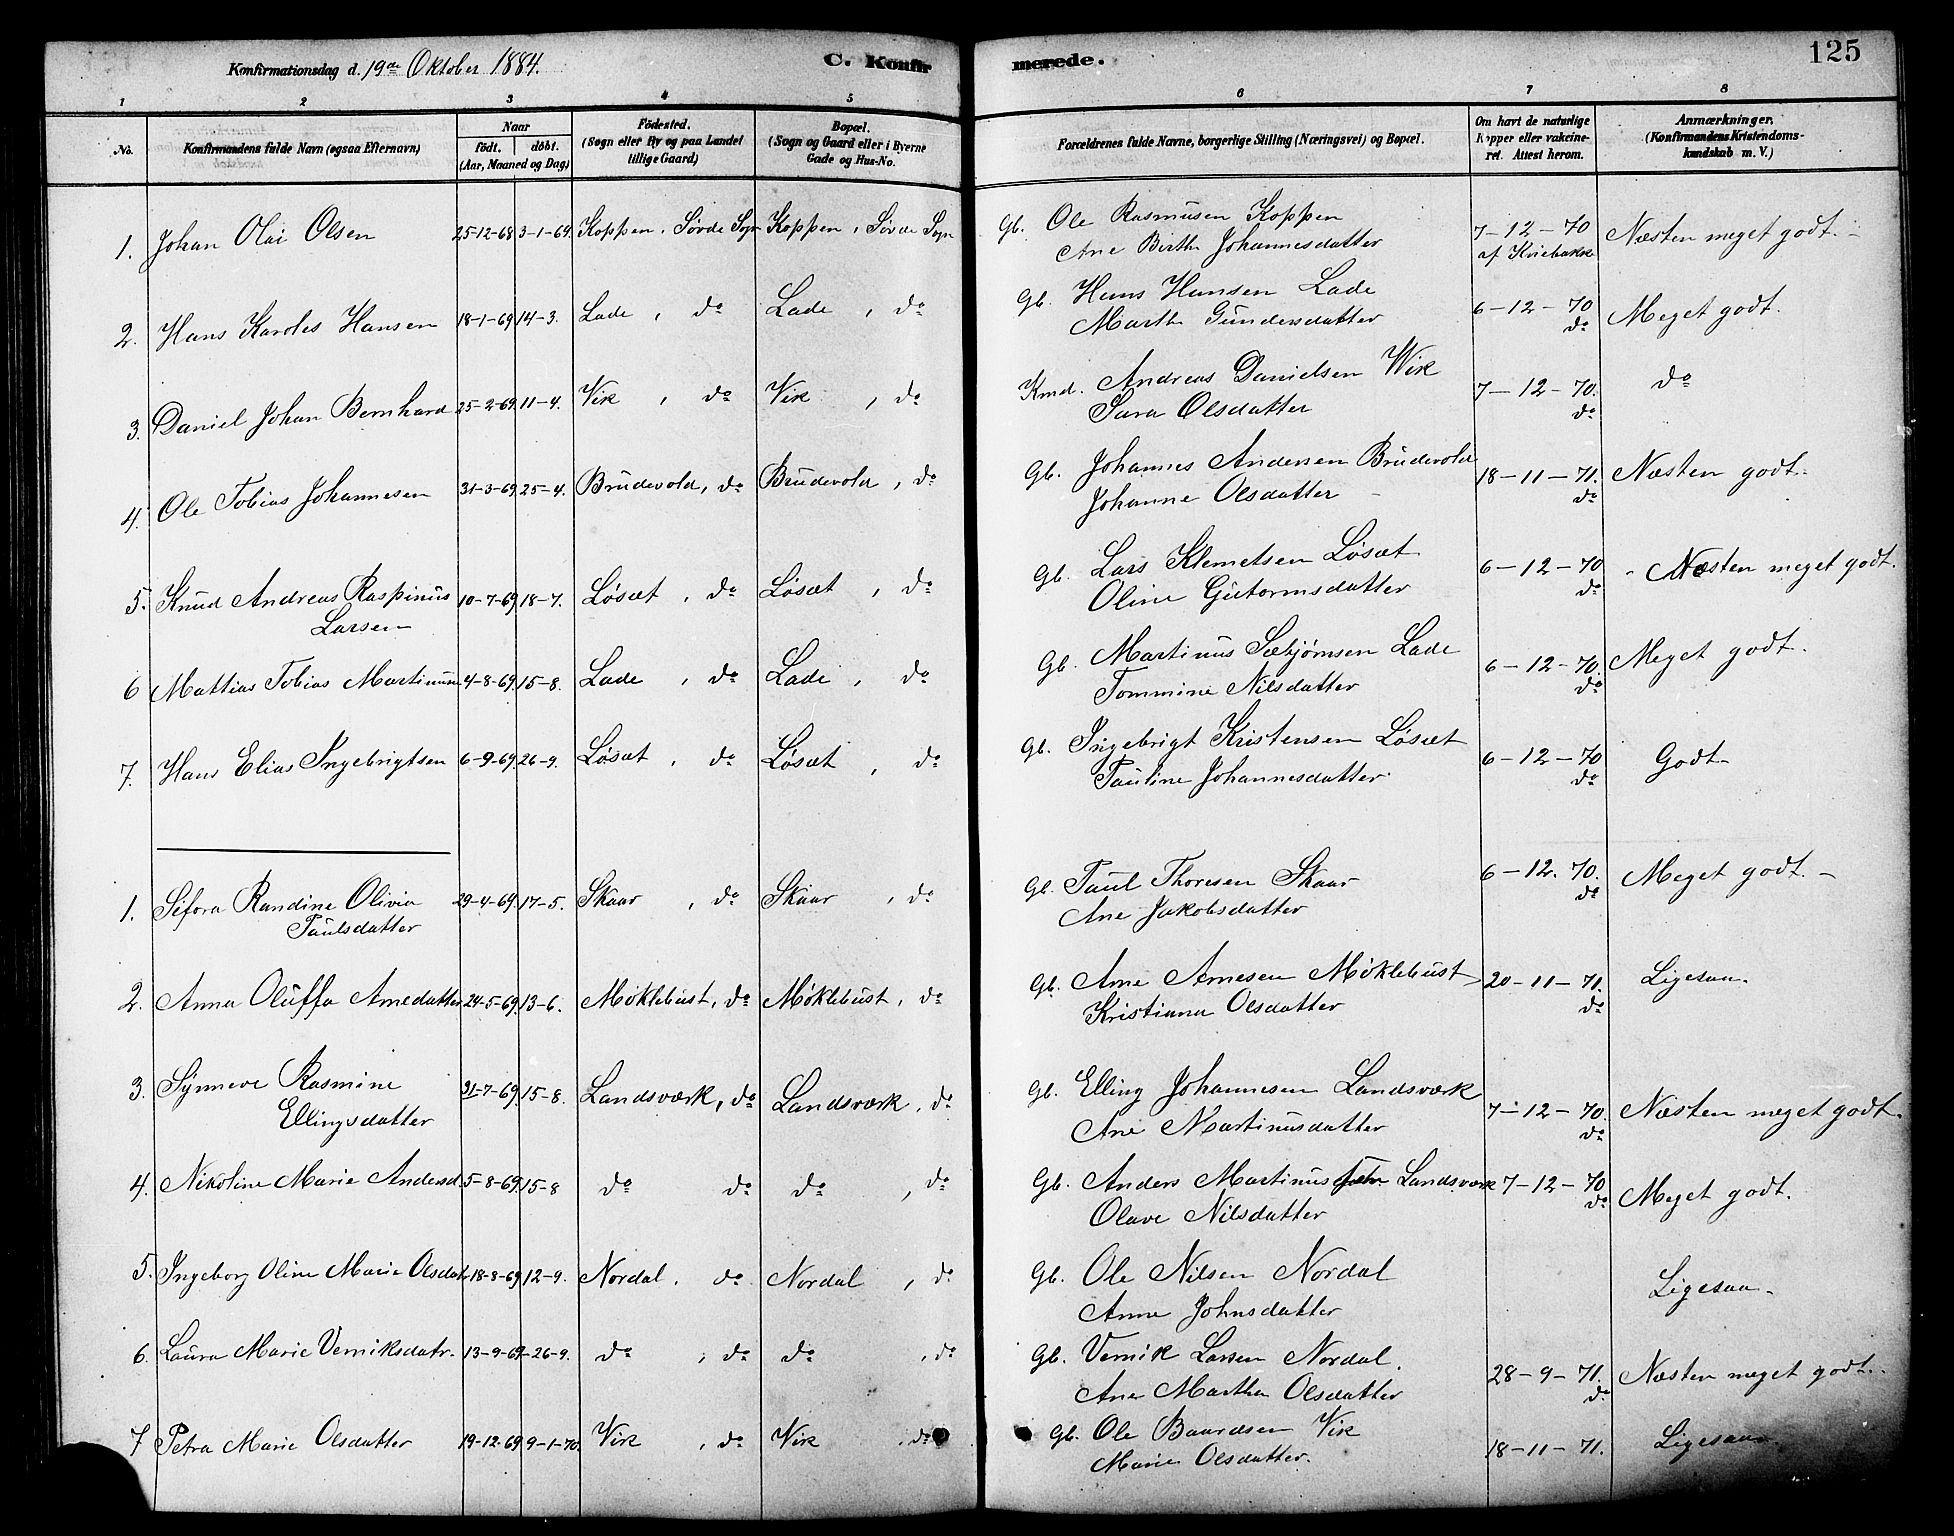 Konfirmationsdag d. 19de Oktober 1884. C. Konfirmerede. 125
1 2 3 4 5 6 7 8
No. Konfirmandens fulde Navn (ogsaa Efternavn) Naar födt. döbt. (Aar, Maaned og Dag) Födested. (Sogn eller By og paa Landet tillige Gaard) Bopæl. (Sogn og Gaard eller i Byerne Gade og Hus-No. Forældrenes fulde Navne, borgerlige Stilling (Næringsvei) og Bopæl. Om havt de naturlige Kopper eller vakcineret. Attest herom. Anmærkninger. (Konfirmandens Kristendomskundskab m. V.)
1. Johan Olai Olsen 25-12-68 3-1-69. Koppen, Søvde Sogn Koppen, Søvde Sogn Gb. Ole Rasmusen Koppen 7-12-70 Næsten meget godt.
Ane Birthe Johannesdatter af Kviebakke
2. Hans Karoles Hansen 18-1-69 14-3. Lade, do Lade, do Gb. Hans Hansen Lade 6-12-70 Meget godt.
Marthe Gundersdatter do
3. Daniel Johan Bernhard 25-2-69. 11-4. Vik, do Vik, do Kmd. Andreas Danielsen Wik 7-12-70. do
Sara Olsdatter do
4. Ole Tobias Johannesen 31-3-69. 25-4. Brudevold, do Brudevold, do Gb. Johannes Andersen Brudevold 18-11-71. Næsten godt.
Johanne Olsdatter do
5. Knud Andreas Raspinus 10-7-69. 18-7. Løsæt, do Løsæt, do Gb. Lars Klemetsen Løsæt 6-12-70 Næsten meget godt.
Larsen Oline Gutormsdatter do
6 Mattias Tobias Martinusn 4-8-69. 15-8. Lade, do Lade, do Gb. Martinus Sæbjørnsen Lade 6-12-70. Meget godt.
Tommine Nilsdatter do
7. Hans Elias Ingebrigtsen 6-9-69. 26-9. Løsæt, do Løsæt, do Gb. Ingebrigt Kristensen Løsæt 6-12-70 Godt
Pauline Johannesdatter do
1. Sefora Randine Olivia 29-4-69. 17-5. Skaar, do Skaar, do Gb. Paul Thoresen Skaar 6-12.70. Meget godt.
Paulsdatter Ane Jakobsdatter do
2. Anna Oluffa Arnedatter 24-5-69. 13-6. Møklebust, do Møklebust, do Gb. Arne Arnesen Møklebust 20-11-71. Ligesaa.
Kristiana Olsdatter do
3. Synneve Rasmine 21-7-69. 15-8. Landsværk, do Landsværk, do Gb. Elling Johannesen Landsværk 7-12-70. Næsten meget godt.
Ellingsdatter Ane Martinusdatter do
4. Nikoline Marie Andersd. 5-8-69. 15-8 do do do, do Gb. Anders Martinus Landsværk 7-12-70 Meget godt.
Olave Nilsdatter do
5. Ingeborg Oline Marie Olsdatr 18-8-69 12-9. Nordal, do Nordal, do Gb. Ole Nilsen Nordal Ligesaa.
Anne Johnsdatter
6. Laura Marie Verniksdatr. 13-9-69 26-9. do, do do, do Gb. Vernik Larsen Nordal. 28-9-71. Næsten meget godt.
Ane Marthe Olsdatter do
7 Petra Marie Olsdatter 19-12.69. 9-1-70. Vik, do Vik, do Gb. Ole Baardsen Vik 18-11-71. Ligesaa.
Marie Olsdatter.